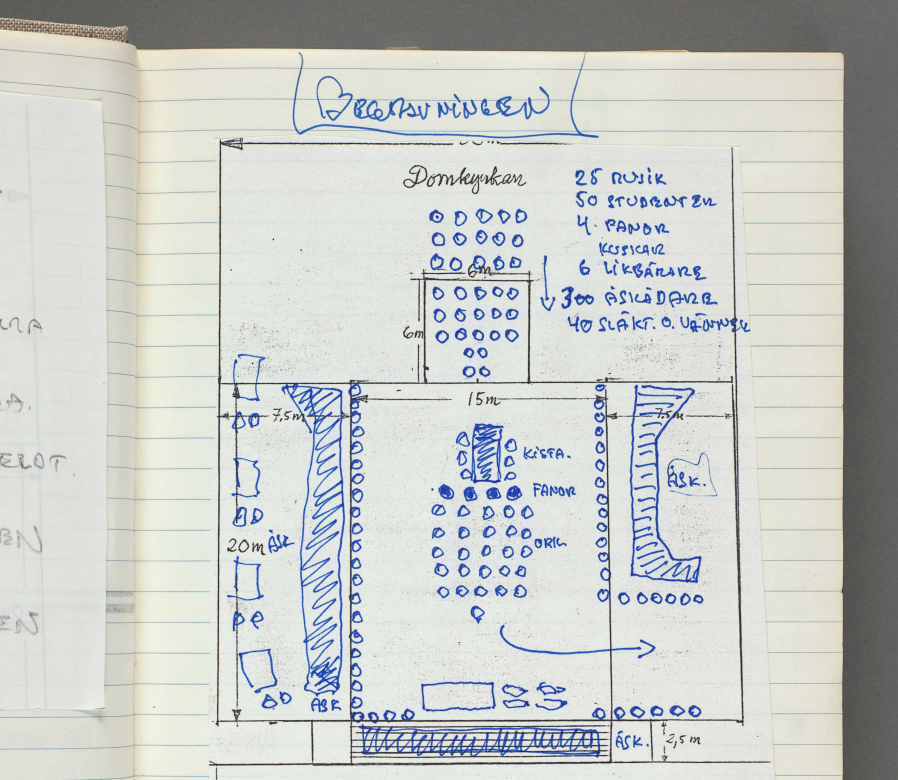 BEGRAVNINGEN
Domkyrkan
25 MUSIK
50 STUDENTER
4 FANOR
KUSKAR
6 LIKBÄRARE
300 ÅSKÅDARE
40 SLÄKT. O. VÄNNER
6m
6m
7,5m
15m
7,5m
KISTA.
ÅSK.
FANOR
ORK.
20m
ÅSK
ÅSK
ÅSK.
2,5m